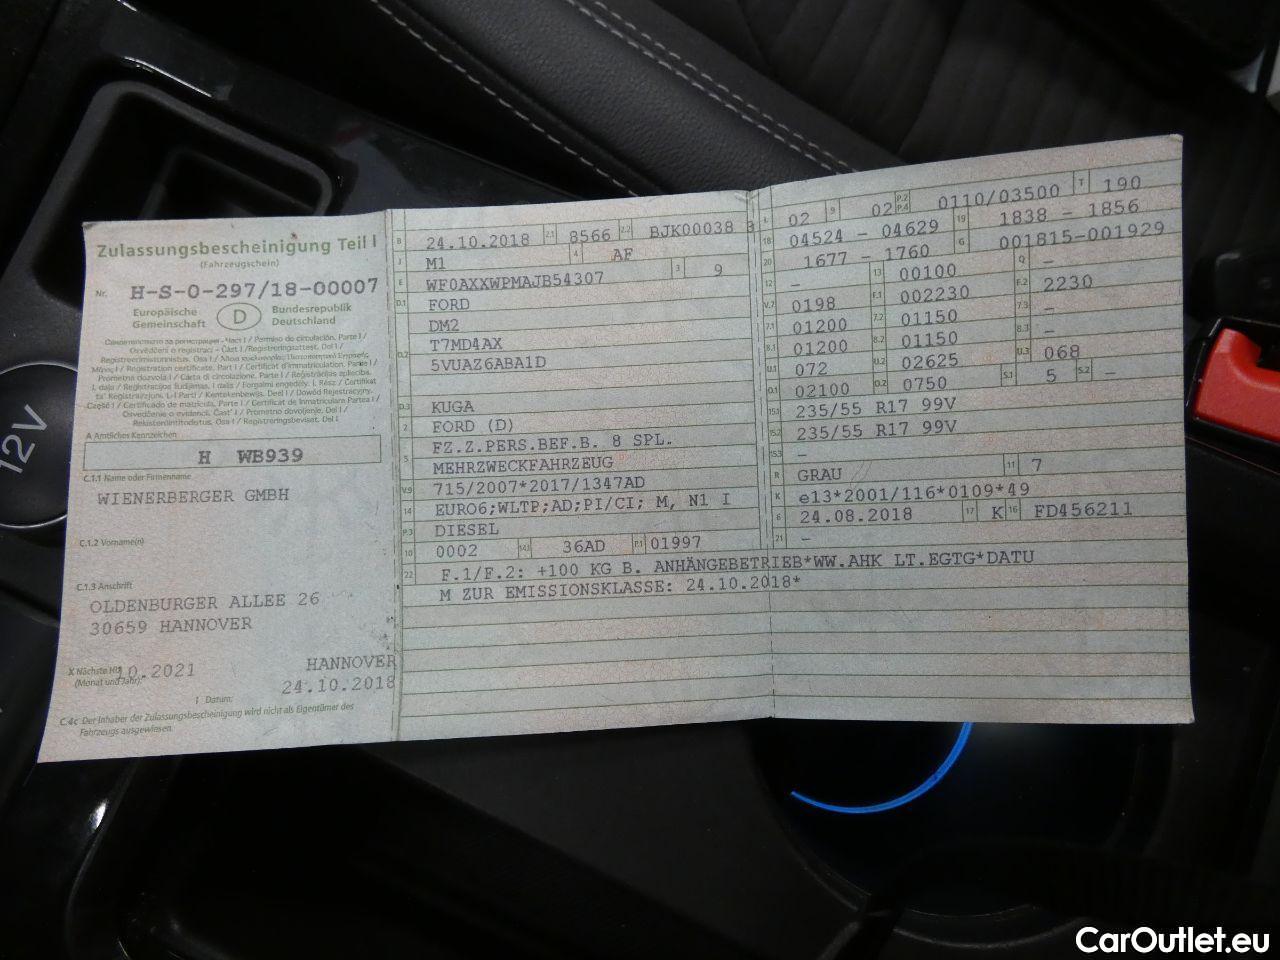 Zulassungsbescheinigung Teil I
(Fahrzeugschein)
Nr. H-S-O-297/18-00007
Europäische Gemeinschaft
D
Bundesrepublik Deutschland
A Amtliches Kennzeichen
H WB939
C.1.1 Name oder Firmenname
WIENERBERGER GMBH
C.1.2 Vorname(n)
C.1.3 Anschrift
OLDENBURGER ALLEE 26
30659 HANNOVER
X Nächste HU
(Monat und Jahr):
10.2021
HANNOVER
I Datum:
24.10.2018
C.4c Der Inhaber der Zulassungsbescheinigung wird nicht als Eigentümer des
Fahrzeugs ausgewiesen.
B 24.10.2018 2.1 8566 2.2 BJK00038
J M1 4 AF
E WF0AXXWPMAJB54307 3 9
D.1 FORD
DM2
D.2 T7MD4AX
5VUAZ6ABA1D
D.3 KUGA
2 FORD (D)
5 FZ.Z.PERS.BEF.B. 8 SPL.
MEHRZWECKFAHRZEUG
V.9 715/2007*2017/1347AD
14 EURO6;WLTP;AD;PI/CI; M, N1 I
P.3 DIESEL
10 0002 14.1 36AD P.1 01997
22 F.1/F.2: +100 KG B. ANHÄNGEBETRIEB*WW.AHK LT.EGTG*DATU
M ZUR EMISSIONSKLASSE: 24.10.2018*
L 02 9 02 P.2 P.4 0110/03500 T 190
18 04524 - 04629 19 1838 - 1856
20 1677 - 1760 G 001815-001929
12 - 13 00100 Q -
V.7 0198 F.1 002230 F.2 2230
7.1 01200 7.2 01150 7.3 -
8.1 01200 8.2 01150 8.3 -
U.1 072 U.2 02625 U.3 068
O.1 02100 O.2 0750 S.1 5 S.2 -
15.1 235/55 R17 99V
15.2 235/55 R17 99V
15.3 -
R GRAU 11 7
K e13*2001/116*0109*49
6 24.08.2018 17 K 16 FD456211
21 -
12V
CarOutlet.eu